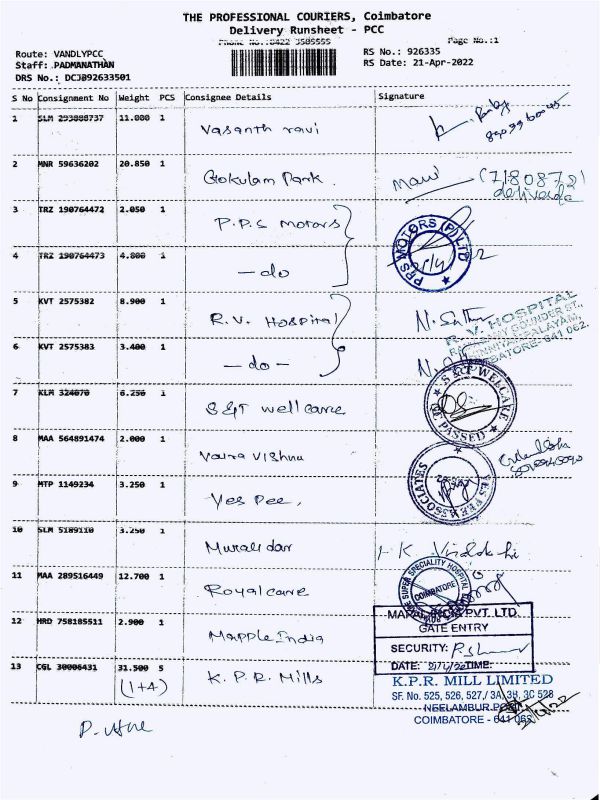 THE PROFESSIONAL COURIERS, Coimbatore
Delivery Runsheet - PCC
Phone No.:0422 3505555 Page No.:1
Route: VANDLYPCC RS No.: 926335
Staff: PADMANATHAN RS Date: 21-Apr-2022
DRS No.: DCJ892633501
S No Consignment No Weight PCS Consignee Details Signature
1 SLM 293808737 11.000 1 Vasanth ravi
2 MNR 59636202 20.850 1 Gokulam Park.
3 TRZ 190764472 2.050 1 P.P.S Motors
PRS MOTORS (P) LTD
4 TRZ 190764473 4.800 1 -do
5 KVT 2575382 8.900 1 R.V. Hospital
R.V. HOSPITAL
6 KVT 2575383 3.400 1 -do-
COIMBATORE-641 062.
7 KLM 324070 6.250 1 S&T wellcare
S & T WELCARE
PASSED
8 MAA 564891474 2.000 1 Vishnu
9 MTP 1149234 3.250 1 Yes Pee.
YES PEE ASSOCIATES
10 SLM 5189110 3.250 1 Muralidar
11 MAA 289516449 12.700 1 Royalcare
SUPER SPECIALITY HOSPITAL
COIMBATORE
12 HRD 758185511 2.900 1 Mapple India
PVT. LTD.
GATE ENTRY
SECURITY:
DATE: TIME:
13 CGL 30006431 31.500 5 K.P.R. Mills
(1+4)
K.P.R. MILL LIMITED
SF. No. 525, 526, 527,/ 3A, 3B, 3C 528
NEELAMBUR POST
COIMBATORE - 641 062